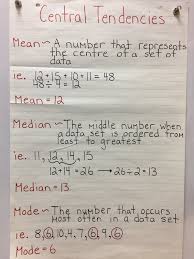 "Central Tendencies"
Mean ~ A number that represents
the centre of a set of
data
ie. 12+15+10+11 = 48
48÷4 = 12
Mean = 12
Median ~ The middle number when
a data set is ordered from
least to greatest
ie. 11, 12, 14, 15
12+14 = 26 → 26÷2 = 13
Median = 13
Mode ~ The number that occurs
most often in a data set
ie. 8, 6, 10, 4, 7, 6, 9, 6
Mode = 6